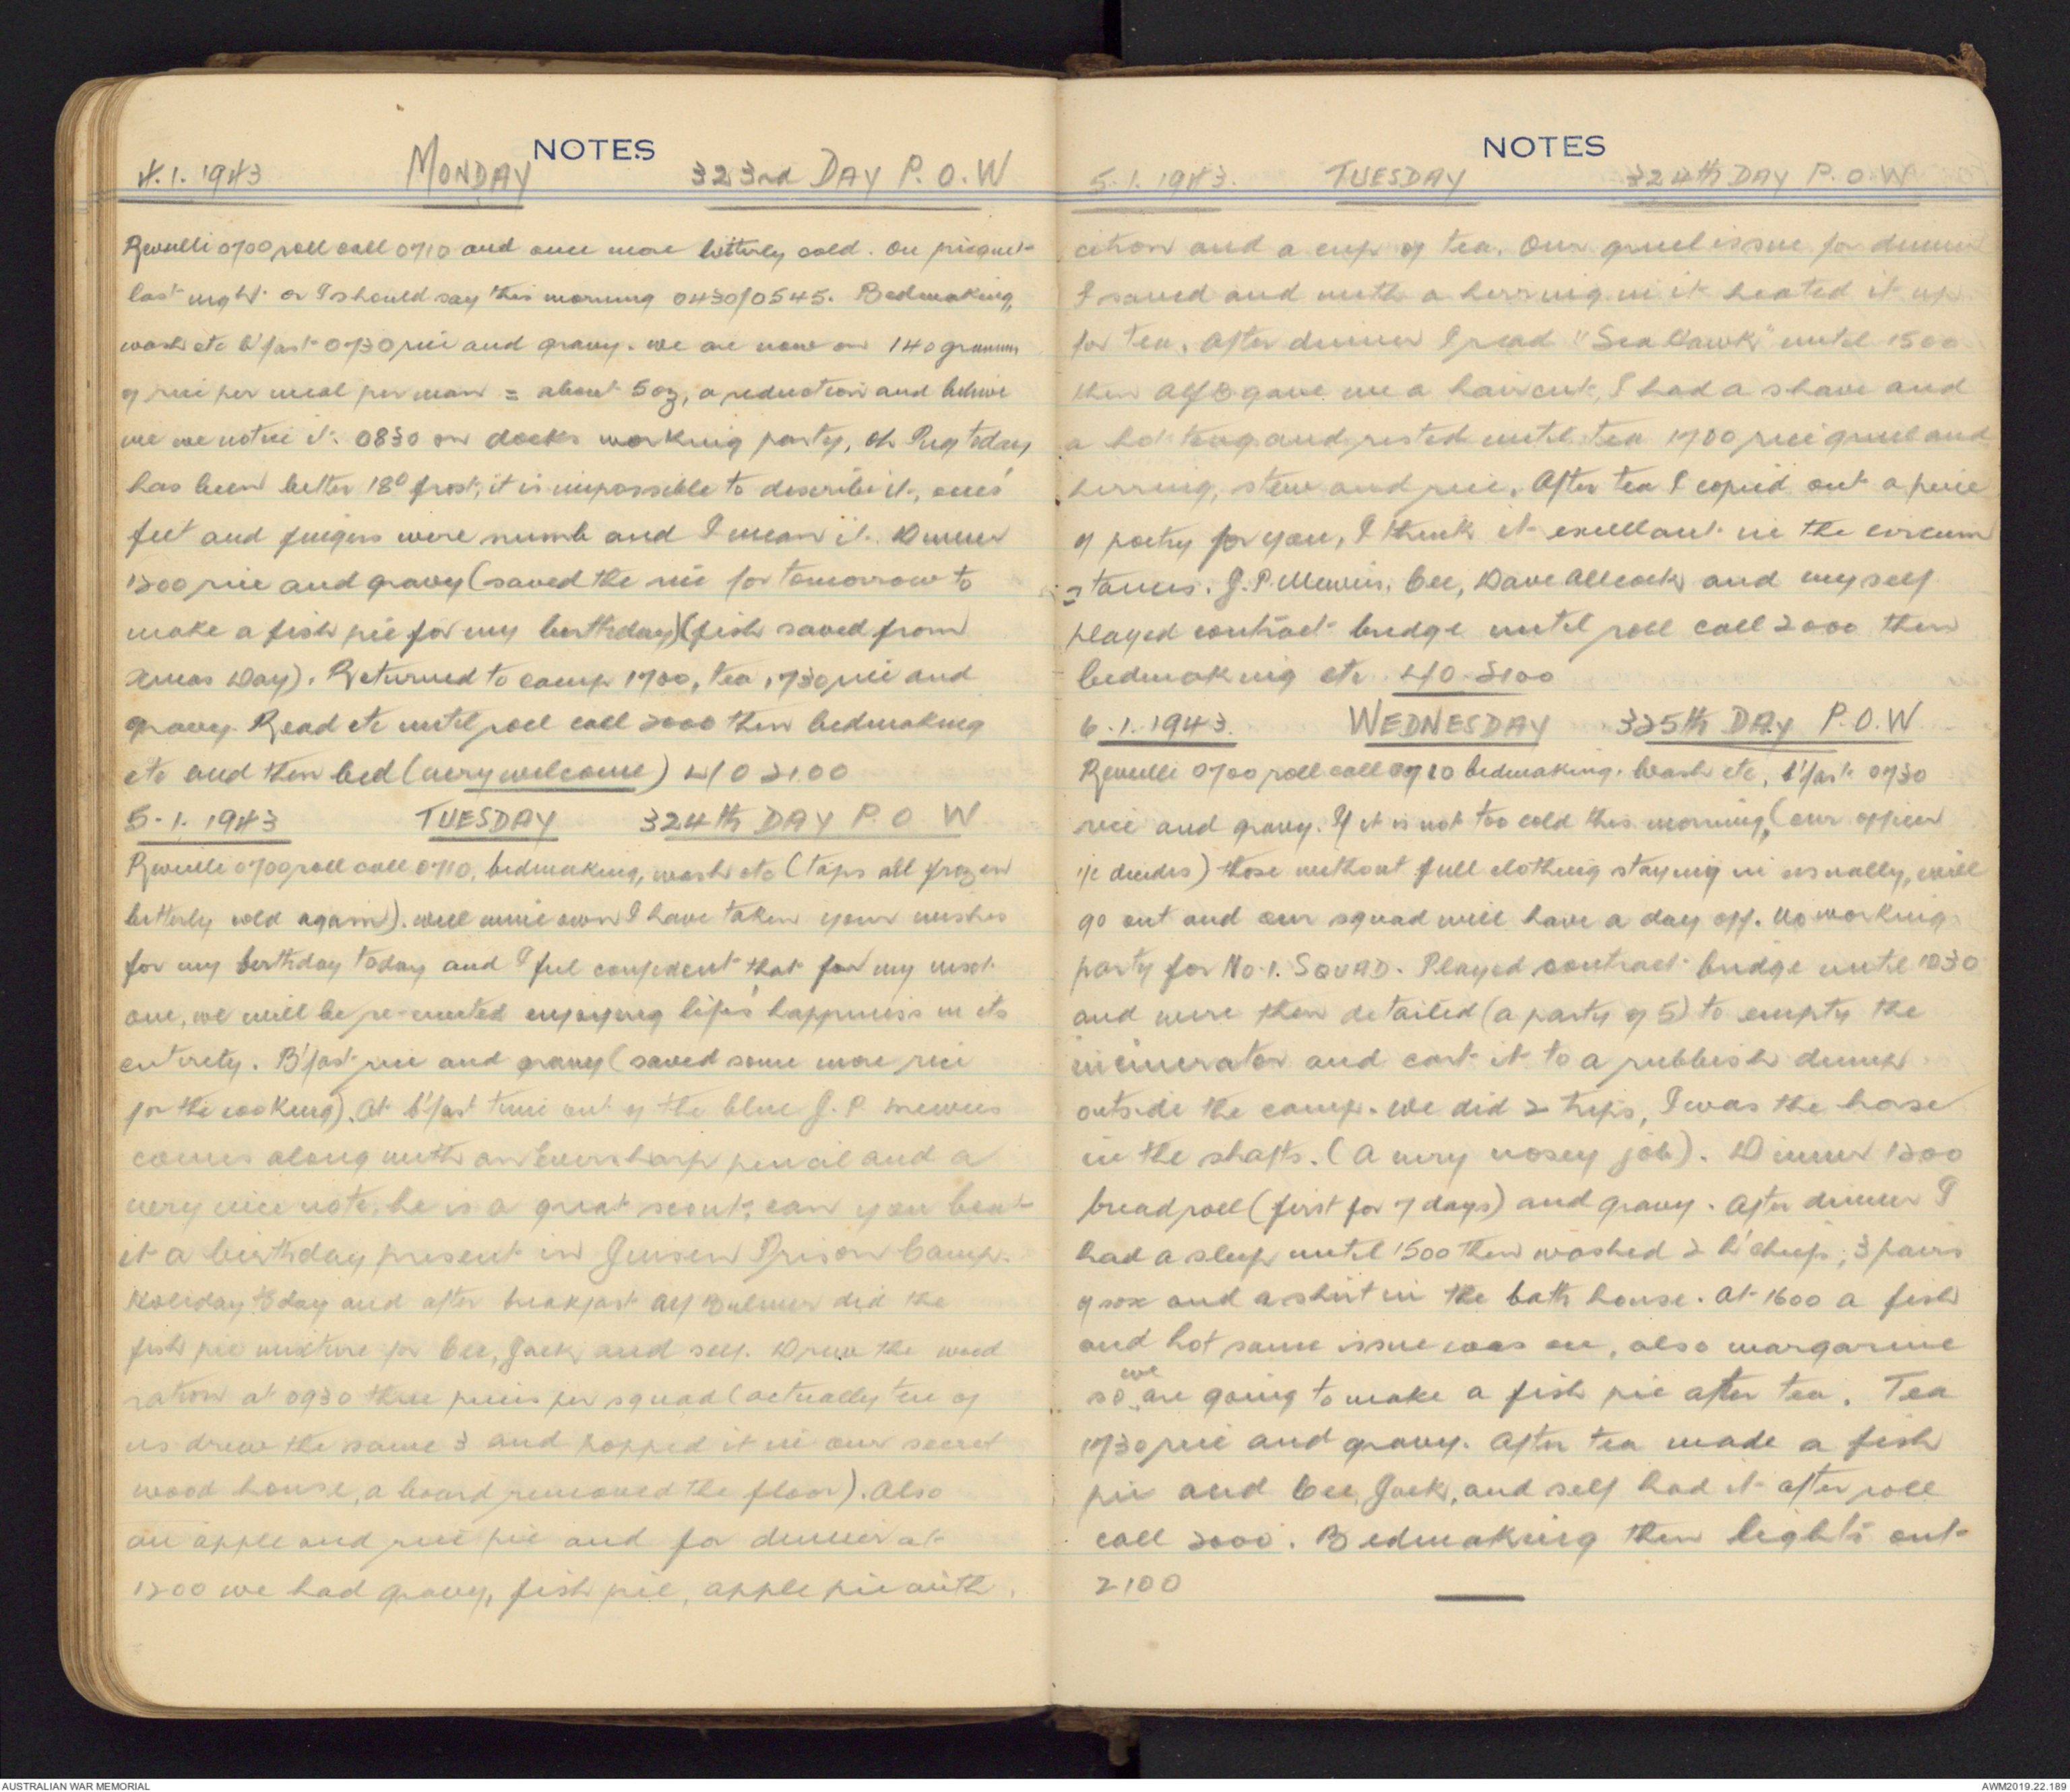 NOTES
4.1.1943 MONDAY 323rd DAY P.O.W
Reveille 0700 roll call 0710 and once more bitterly cold. On picquet
last night or I should say this morning 0430/0545. Bedmaking,
wash etc b'fast 0730 rice and gravy. we are now on 140 grammes
of rice per meal per man = about 5 oz, a reduction and believe
me we notice it. 0830 on docks working party, oh Peg today
has been bitter 18° frost, it is impossible to describe it, ones'
feet and fingers were numb and I mean it. Dinner
1200 rice and gravy (saved the rice for tomorrow to
make a fish pie for my birthday)(fish saved from
Xmas Day). Returned to camp 1700, tea 1730 rice and
gravy. Read etc until roll call 2000 then bedmaking
etc and then bed (very welcome) L/O 2100
5.1.1943 TUESDAY 324th DAY P.O W
Reveille 0700 roll call 0710, bedmaking, wash etc (taps all frozen
bitterly cold again). Well mine own I have taken your wishes
for my birthday today and I feel confident that for my next
one, we will be re-united enjoying life's happiness in its
entirety. B'fast rice and gravy (saved some more rice
for the cooking). At b'fast time out of the blue J.P. Mewies
comes along with an Eversharp pencil and a
very nice note, he is a great scout, can you beat
it a birthday present in Jinsen Prison Camp.
Holiday today and after breakfast Alf Bulmer did the
fish pie mixture for Cec, Jack and self. Drew the wood
ration at 0930 three pieces per squad (actually two of
us drew the same 3 and popped it in our secret
wood house, a board removed the floor). Also
an apple and rice pie and for dinner at
1200 we had gravy, fish pie, apple pie with
NOTES
5.1.1943. TUESDAY 324th DAY P.O.W
citron and a cup of tea. Our gruel issue for dinner
I saved and with a herring in it heated it up
for tea. After dinner I read "Sea Hawk" until 1500
then Alf B gave me a haircut, I had a shave and
a hot and rested until tea 1700 rice gruel and
herring, stew and rice. After tea I copied out a piece
of poetry for you, I think it excellant in the circum
=tances. J.P. Mewies, Cec, Dave Allcock and myself
played contract bridge until roll call 2000 then
bedmaking etc. L/O. 2100
6.1.1943. WEDNESDAY 325th DAY P.O.W
Reveille 0700 roll call 0710 bedmaking. Wash etc, b'fast 0730
rice and gravy. If it is not too cold this morning, (our officer
i/c decides) those without full clothing staying in usually, will
go out and our squad will have a day off. No working
party for No.1. SQUAD. Played contract bridge until 1030
and were then detailed (a party of 5) to empty the
incinerator and cart it to a rubbish dump
outside the camp. We did 2 trips, I was the horse
in the shafts. (A very nosey job). Dinner 1200
bread roll (first for 7 days) and gravy. After dinner I
had a sleep until 1500 then washed 2 h'chiefs, 3 pairs
of sox and a shirt in the bath house. At 1600 a fish
and hot sauce issue was on, also margarine
so we are going to make a fish pie after tea. Tea
1730 rice and gravy. After tea made a fish
pie and Cec, Jack, and self had it after roll
call 2000. Bedmaking then lights out
2100
AUSTRALIAN WAR MEMORIAL
AWM2019.22.189